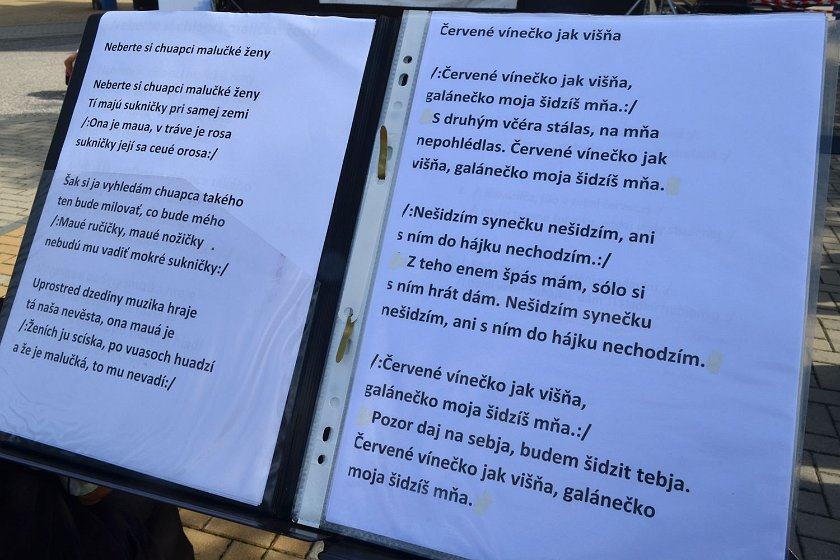 Neberte si chuapci malučké ženy
Neberte si chuapci malučké ženy
Tí majú sukničky pri samej zemi
/:Ona je maua, v tráve je rosa
sukničky její sa ceué orosa:/
Šak si ja vyhledám chuapca takého
ten bude milovať, co bude mého
/:Maué ručičky, maué nožičky
nebudú mu vadiť mokré sukničky:/
Uprostred dzediny muzika hraje
tá naša nevěsta, ona mauá je
/:Ženích ju scíska, po vuasoch huadzí
a že je malučká, to mu nevadí:/
Červené vínečko jak višňa
/:Červené vínečko jak višňa,
galánečko moja šidzíš mňa.:/
S druhým včéra stálas, na mňa
nepohlédlas. Červené vínečko jak
višňa, galánečko moja šidzíš mňa.
/:Nešidzím synečku nešidzím, ani
s ním do hájku nechodzím.:/
Z teho enem špás mám, sólo si
s ním hrát dám. Nešidzím synečku
nešidzím, ani s ním do hájku nechodzím.
/:Červené vínečko jak višňa,
galánečko moja šidzíš mňa.:/
Pozor daj na sebja, budem šidzit tebja.
Červené vínečko jak višňa, galánečko
moja šidzíš mňa.